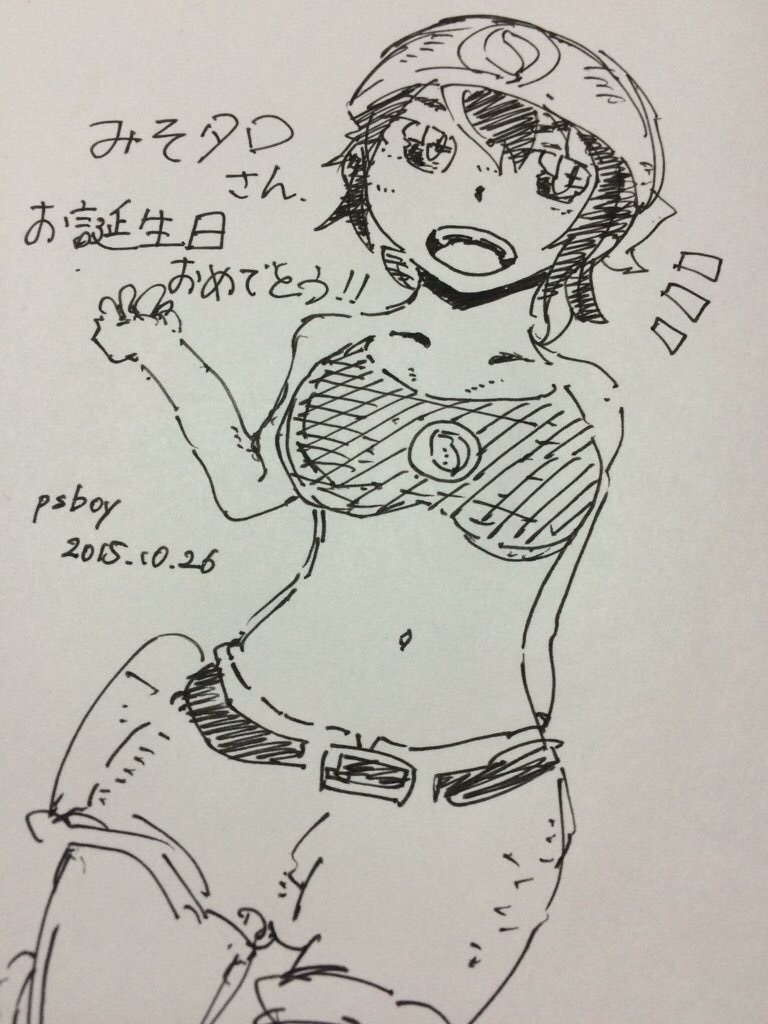 みそタロ
さん.
お誕生日
おめでとう!!
psboy
2015.10.26